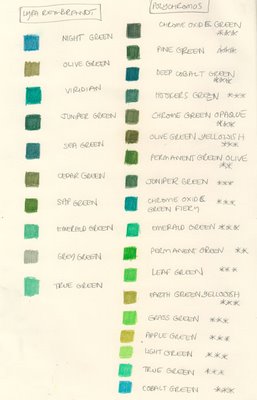 LYRA REMBRANDT
NIGHT GREEN
OLIVE GREEN
VIRIDIAN
JUNIPER GREEN
SEA GREEN
CEDAR GREEN
SAP GREEN
EMERALD GREEN
GREY GREEN
TRUE GREEN
POLYCHROMOS
CHROME OXIDE GREEN
***
PINE GREEN ***
DEEP COBALT GREEN
***
HOOKERS GREEN ***
CHROME GREEN OPAQUE
***
OLIVE GREEN YELLOWISH
***
PERMANENT GREEN OLIVE
**
JUNIPER GREEN ***
CHROME OXIDE ***
GREEN FIERY
EMERALD GREEN ***
PERMANENT GREEN **
LEAF GREEN ***
EARTH GREEN YELLOWISH
***
GRASS GREEN ***
APPLE GREEN ***
LIGHT GREEN ***
TRUE GREEN ***
COBALT GREEN ***